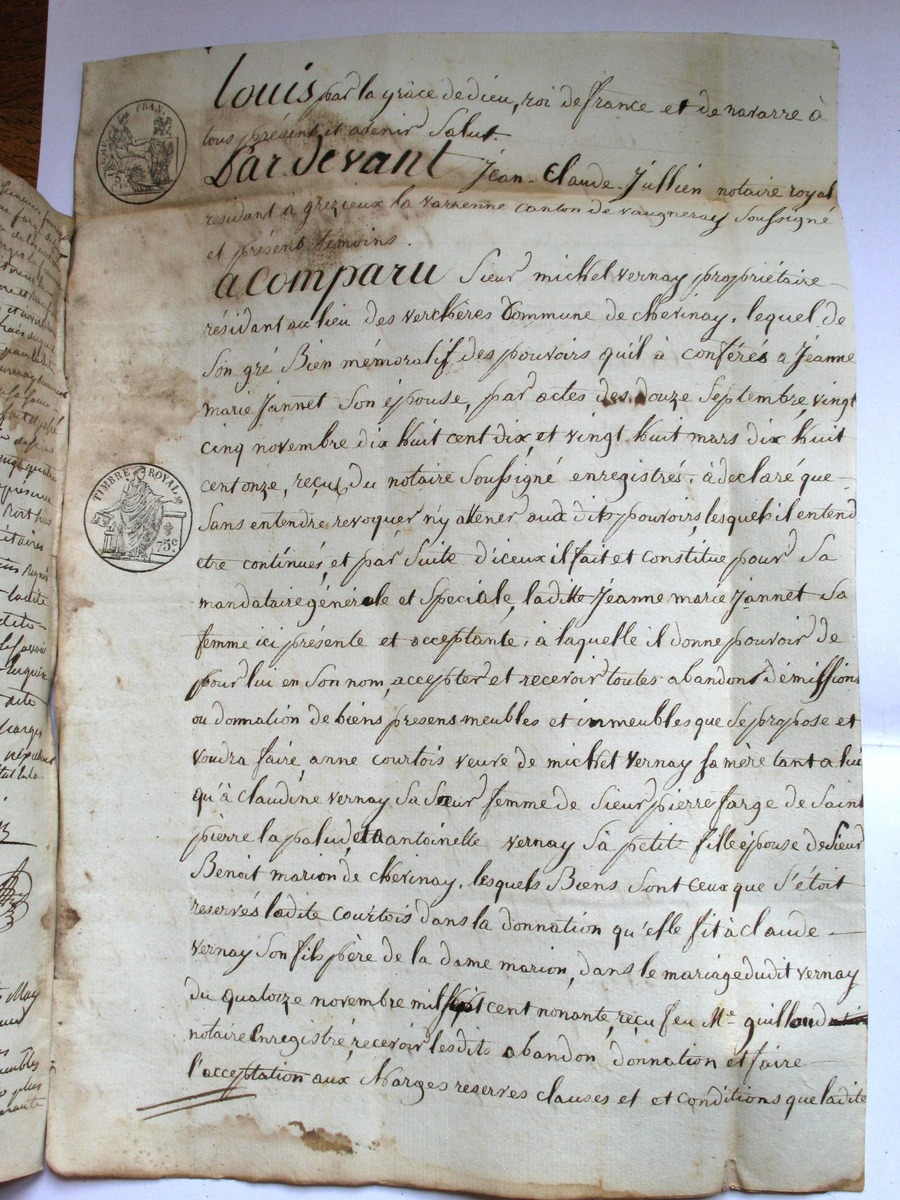 Louis par la grâce de dieu, roi de france et de navarre à
tous présent et avenir Salut
Par devant Jean-Claude Jullien notaire royal
résidant à grezieux la varenne canton de vaugneray Soussigné
et présent témoins.
a Comparu Sieur michel vernay propriétaire
résidant au lieu des verchères Commune de chevinay, lequel de
Son gré Bien mémoratif des pouvoirs qu'il à conférés a Jéanne
marie Jannet Son épouse, par actes des douze Septembre, vingt
cinq novembre dix huit cent dix, et vingt huit mars dix huit
cent onze, reçus du notaire Soussigné enregistrés, à déclaré que
Sans entendre revoquer n'y attener aux dits pouvoirs, lesquels il entend
etre continués, et par Suite d'iceux il fait et constitue pour Sa
mandataire générale et Spéciale, laditte Jéanne marie Jannet Sa
femme ici présente et acceptante, à laquelle il donne pouvoir de
pour lui en Son nom, accepter et recevoir toutes abandons démissions
ou donnation de biens presens meubles et immeubles que Se propose et
voudra faire, anne courtois veuve de michel vernay Sa mère tant a lui
qu'à claudine vernay Sa Sœur femme de Sieur pierre farge de Saint
pierre la palud, et a antoinette vernay Sa petite fille épouse de Sieur
Benoit marion de chevinay, lesquels Biens Sont Ceux que S'étoit
reservés ladite Courtois dans la donnation qu'elle fit à claude
vernay Son fils père de la dame marion, dans le mariage dudit vernay
du quatorze novembre mil Sept cent nonante, reçu feu Me. guilloud
notaire Enregistré, recevoir lesdits abandon, donnation et faire
l'acceptation aux Charges reserves clauses et et conditions que ladite
TIMBRE ROYAL
75c